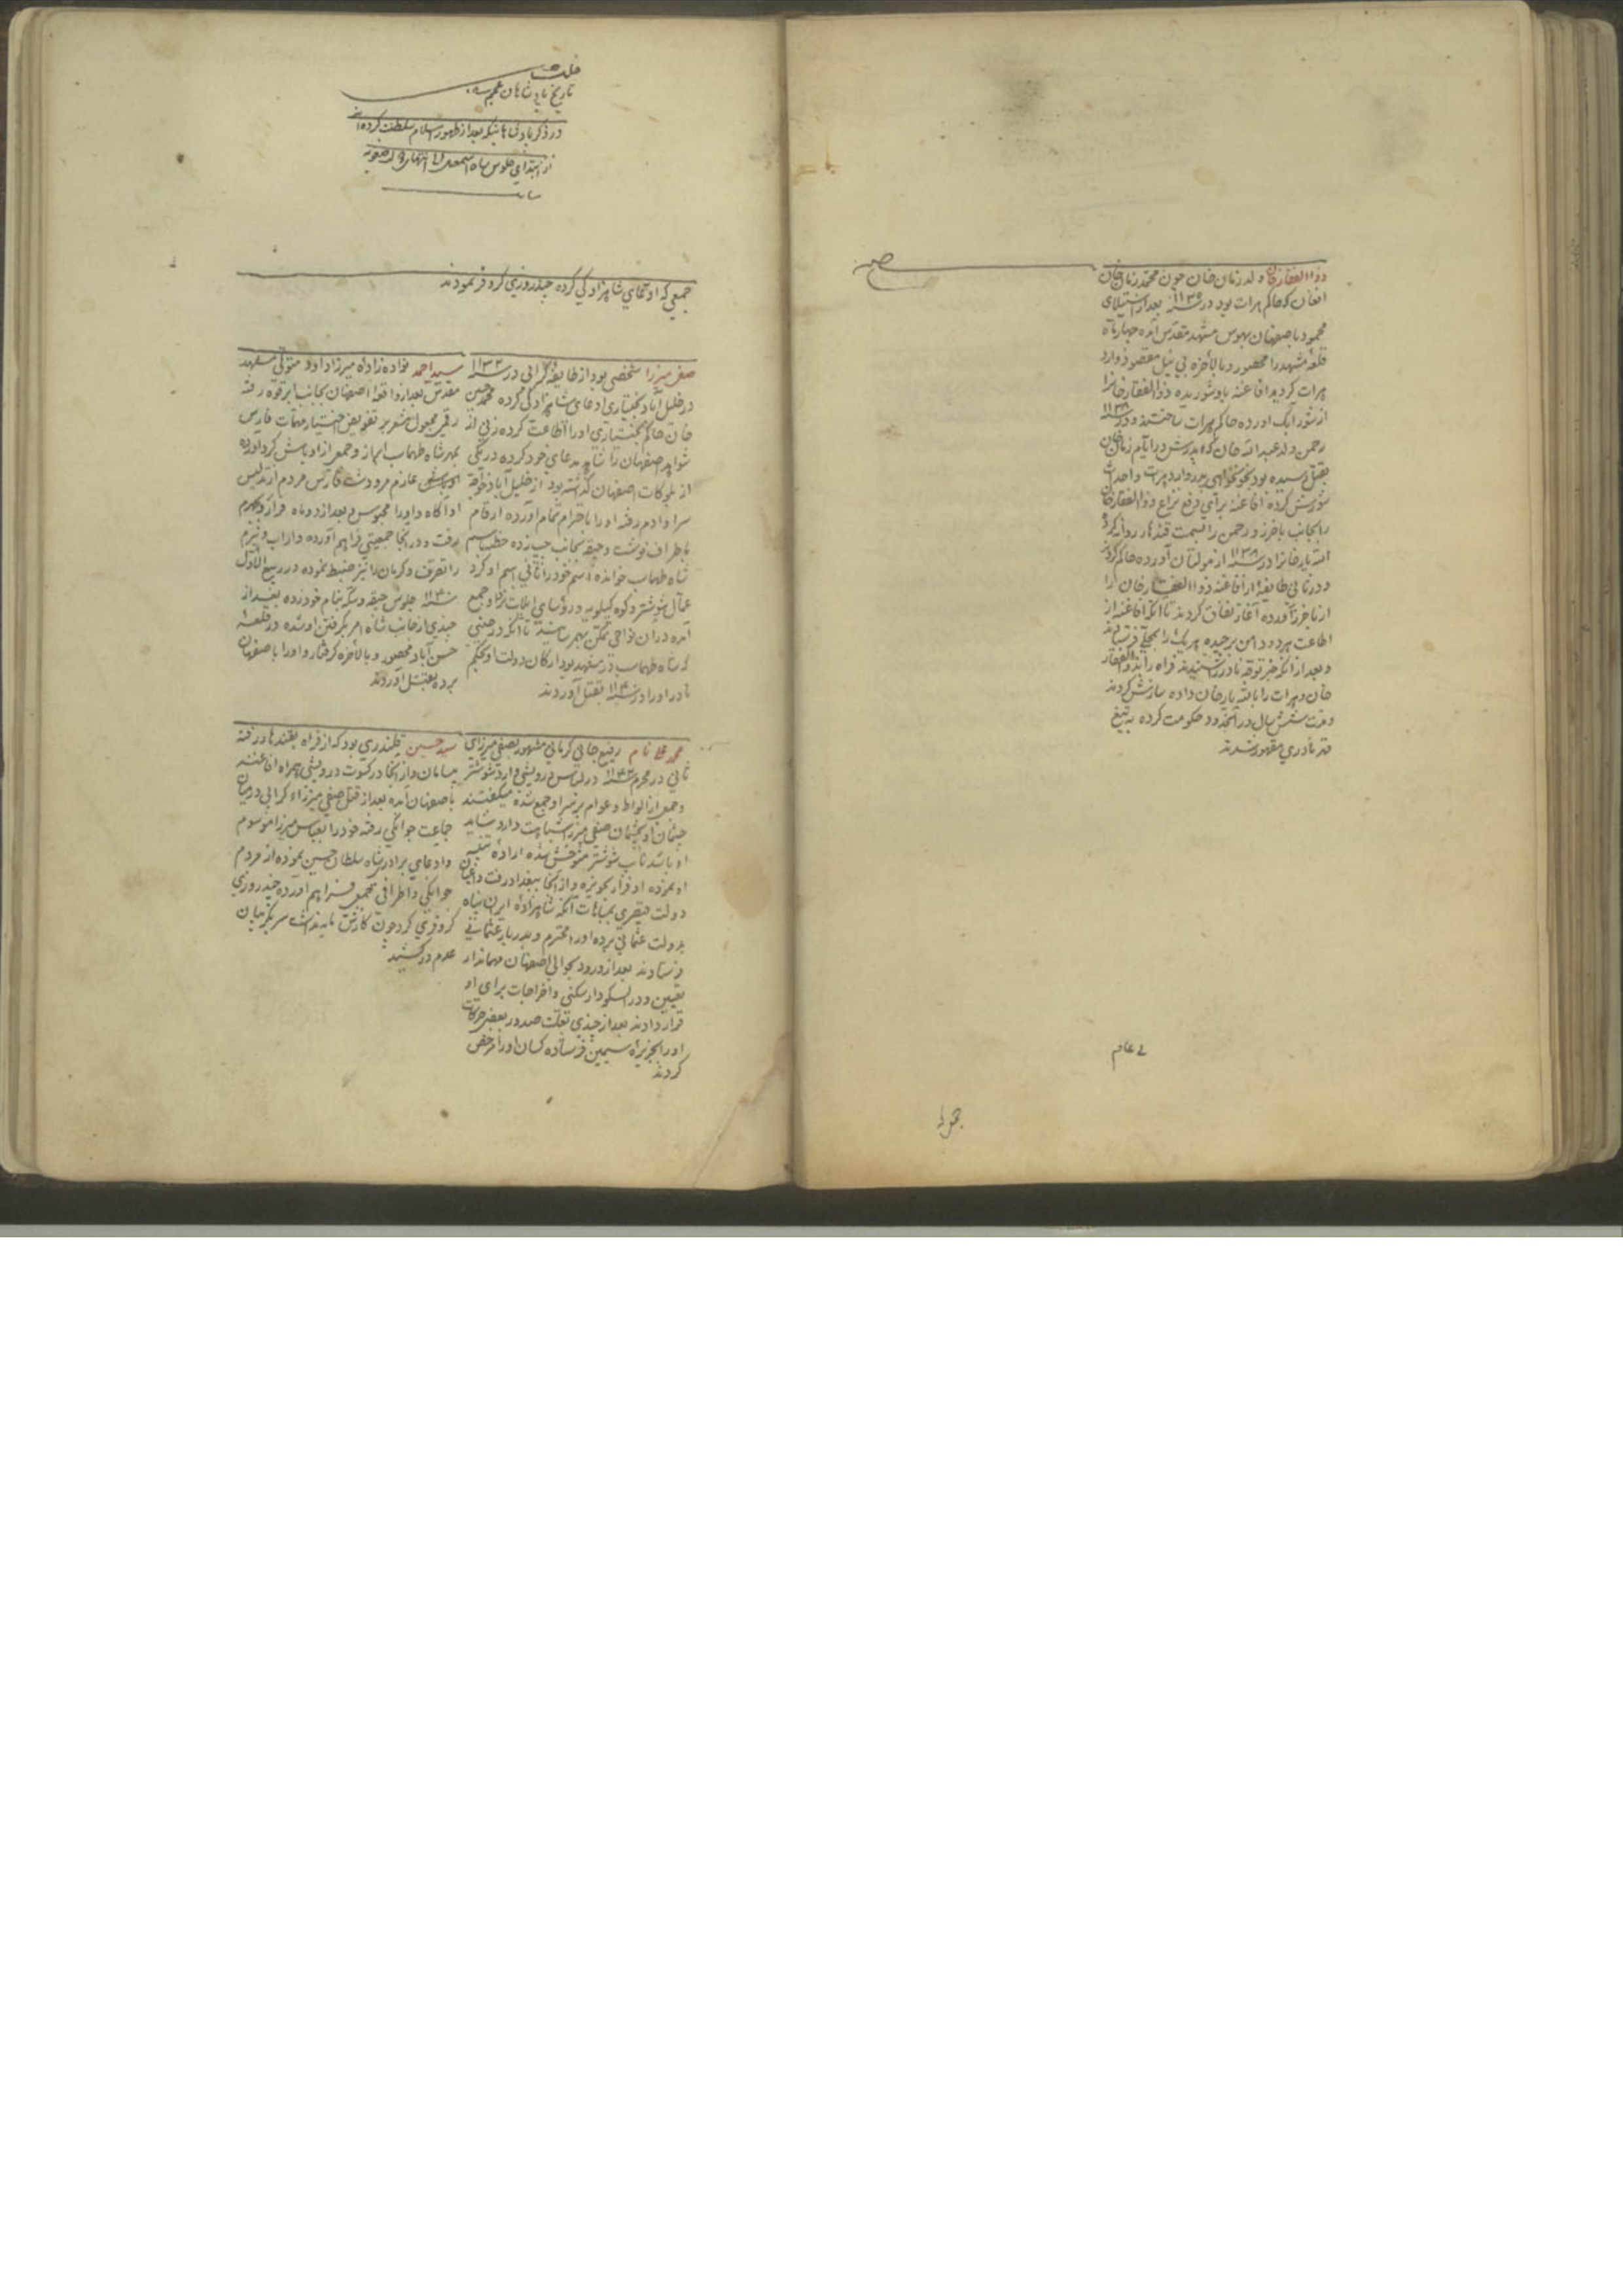 ذو الفقار خان ولد زمان خان چون محمد زمان خان
افغان که حاکم هرات بود در سنه ۱۱۳۵ بعد از استیلای
محمود باصفهان بهوس مشهد مقدس آمده چهار ماه
قلعه مشهد را محصور و بالاخره بی نیل مقصود وارد
هرات کردید افاغنه باو شوریده ذو الفقار خانرا
از شورابک آورده حاکم هرات ساختند و در سنه ۱۱۳۸
رحمن ولد عبد الله خان که پدرش در ایام زمان خان
بقتل رسیده بود بخونخواهی پدر وارد هرات و احداث
شورش کرده افاغنه برای رفع نزاع ذو الفقار خان
را بجانب باخرز و رحمن را بسمت قندهار روانه کرده
الله یار خانرا در سنه ۱۱۳۸ از مولتان آورده حاکم کردند
و در ثانی طایفه از افاغنه ذو الفقار خان را
از باخرز آورده آغاز نفاق کردند تا آنکه افاغنه از
اطاعت هر دو دامن برچیده هر یک را بمحلی فرستادند
و بعد از آنکه خبر توجه نادر را شنیدند فراه را بذو الفقار
خان و هرات را بالله یار خان داده سازش کردند
و مدت شش سال در آنحدود حکومت کرده به تیغ
قهر نادری مقهور شدند
تاریخ پادشاهان عجم
در ذکر پادشاهانیکه بعد از ظهور اسلام سلطنت کرده اند
از ابتدای جلوس شاه اسمعیل الی انتهای دولت صفویه
جمعی که ادعای شاهزادکی کرده چند روزی کر و فر نمودند
صفی میرزا شخصی بود از طایفه کرائی در سنه ۱۱۳۳
در خلیل آباد بختیاری ادعای شاهزادکی کرده محمد حسین
خان حاکم بختیاری او را اطاعت کرده زنی از
شواهد اصفهان را شاهد مدعای خود کرده در یکی
از بلوکات اصفهان کذاشته بود از خلیل آباد خوقه
سرا و آدم رفته او را باحترام تمام آورده ارقام
باطراف نوشت و جیقه بجانب چپ زده خطبه باسم
شاه طهماسب خوانده اسم خود را ثانی اسم او کرد
عمال شوشتر و کوه کیلویه و رؤسای ایلات نزد او جمع
آمده در آن نواحی تمکن بهم رسانید تا آنکه در حینی
که شاه طهماسب در مشهد بود ارکان دولت او بحکم
نادر او را در سنه ۱۱۴۰ بقتل آوردند
سید احمد نواده زاده میرزا داود متولی مشهد
مقدس بعد از واقعه اصفهان بجانب ابرقوه رفته
رقمی مجعول مشعر بر تفویض اختیار مهمات فارس
بمهر شاه طهماسب ابراز و جمعی از اوباش کرد آورده
عازم مرودشت فارس مردم از تدلیس
او آکاه و او را محبوس و بعد از دو ماه فرار و بجهرم
رفت و در آنجا جمعیتی فراهم آورده داراب و نیریز
را تصرف و کرمان را نیز ضبط نموده در ربیع الاول
سنه ۱۱۴۰ جلوس جیقه و سکه بنام خود زده بعد از
چندی از جانب شاه امر بکرفتن او شده در قلعه
حسن آباد محصور و بالاخره کرفتار و او را باصفهان
برده بقتل آوردند
محمد علی نام رفیع جانی کرمانی مشهور بصفی میرزای
ثانی در محرم سنه ۱۱۴۲ در لباس درویشی وارد شوشتر
و جمعی از الواط و عوام بر سر او جمع شده میکفتند
چشمان او بچشمان صفی میرزا شباهت دارد شاید
او باشد نایب شوشتر متوحش شده اراده تنبیه
او نموده او فرار بحویزه و از آنجا ببغداد رفت و اعیان
دولت قیصری بمباهات آنکه شاهزاده ایران پناه
بدولت عثمانی برده او را محترم و بدربار عثمانی
فرستادند بعد از ورود بحوالی مهماندار
تعیین و در اسکودار سکنی و اخراجات برای او
قرار دادند بعد از چندی بعلت صدور بعضی حرکات
او را بجزیره فرستاده کسان او را مرخص
کردند
سید حسین قلندری بود که از فراه بقندهار رفته
بسامان و از آنجا در کسوت درویشی همراه افاغنه
باصفهان آمده بعد از قتل صفی میرزای کرائی در میان
جماعت جوانکی رفته خود را بعباس میرزا موسوم
و ادعای برادری شاه سلطان حسین نموده از مردم
جوانکی و اطراف جمعی فراهم آورده چند روزی
کر و فری کرد چون کارش مایه نداشت سر بکریبان
عدم در کشید